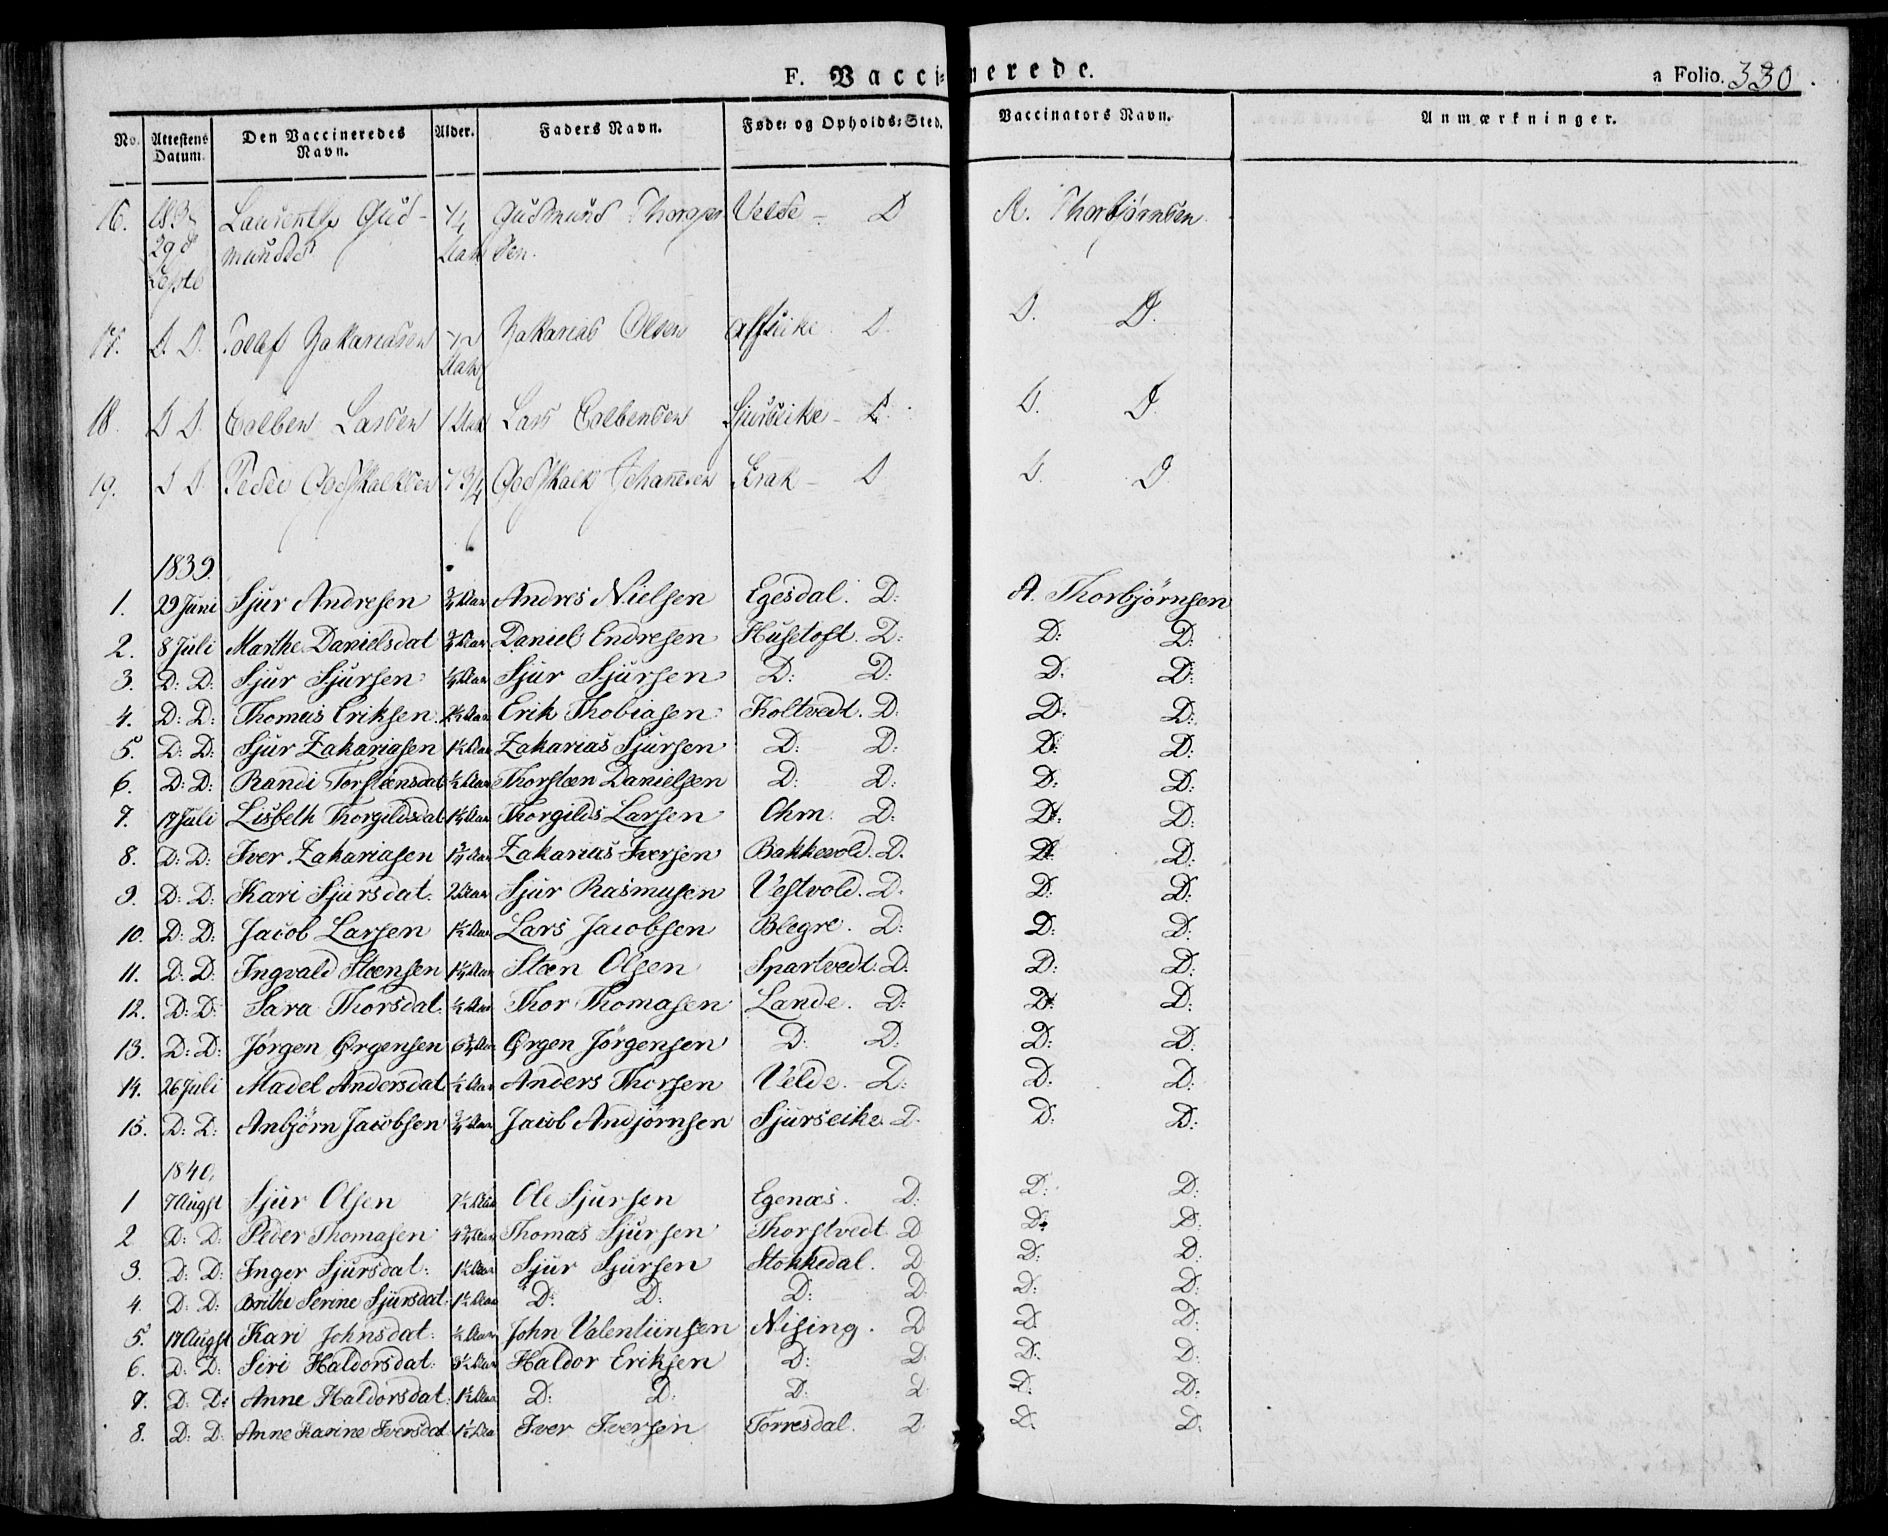 F. Vaccinerede. a Folio. 330.
No. Attestens Datum. Den Vaccineredes Navn. Alder. Faders Navn. Føde- og Opholds-Sted. Vaccinators Navn. Anmærkninger.
16. Gud- Gudmund Velde - D A. Thorbjørnsen
mundsd sen.
17. D. D. Zakariasen Zakarias Olsen D. D. D.
18. D D. Larsen 1 Aar Lars Sjurseike - D. D. D.
19. D D. Godskalksen 1 3/4 Godskalk Johannesen D D. D
1839.
1. 29 Juni Sjur Andresen 3/4 Aar Andres Nielsen Egesdal. D: A. Thorbjørnsen
2. 8 Juli Marthe Danielsdat 3/4 Aar Daniel Endresen Husetoft. D: D: D:
3. D: D: Sjur Sjursen Aar Sjur Sjursen D: D: D: D:
4. D: D: Thomas Eriksen Aar Erik Thobiasen Koltvedt. D: D: D:
5. D: D: Sjur Zakariasen Aar Zakarias Sjursen D: D: D: D:
6. D: D: Randi Torstensdat Aar Thorsten Danielsen D: D: D: D:
7. 17 Juli Lisbeth Thorgildsdat Aar Thorgilds Larsen Ohm. D: D: D:
8. D: D: Iver Zakariasen Aar Zakarias Iversen Bakkevold. D. D: D:
9. D: D: Kari Sjursdat. 2 Aar Sjur Rasmusen Vestvold. D. D: D:
10. D: D: Jacob Larsen Aar Lars Jacobsen Blegre. D: D: D:
11. D: D: Ingvald Steensen Aar Steen Olsen Spartvedt. D. D: D:
12. D: D: Sara Thorsdat. Aar Thor Thomasen Lande. D: D: D:
13. D: D: Jørgen Ørgensen Aar Ørgen Jørgensen D: D: D: D:
14. 26 Juli Madel Andersdat Aar Anders Thorsen Velde. D: D: D:
15. D: D: Anbjørn Jacobsen 3/4 Aar Jacob Andjørnsen Sjurseike. D. D: D:
1840.
1 7 Augst Sjur Olsen Aar Ole Sjursen Egenæs. D: D: D:
2 D: D: Peder Thomasen Aar Thomas Sjursen Thorstvedt D D: D:
3. D: D: Inger Sjursdat: Aar Sjur Sjursen Stokkedal. D D: D:
4. D: D: Brithe Serine Sjursdat: Aar D: D: D: D: D: D:
5. 17 Augst Kari Johnsdat: Aar John Valentinsen Nising. D D. D:
6. D: D: Siri Haldorsdat: Aar Haldor Eriksen D: D. D: D:
7. D: D: Anne Haldorsdat: Aar D: D: D: D D: D:
8. D: D. Anne Karine Iversdat Iver Iversen Torresdal. D. D: D: